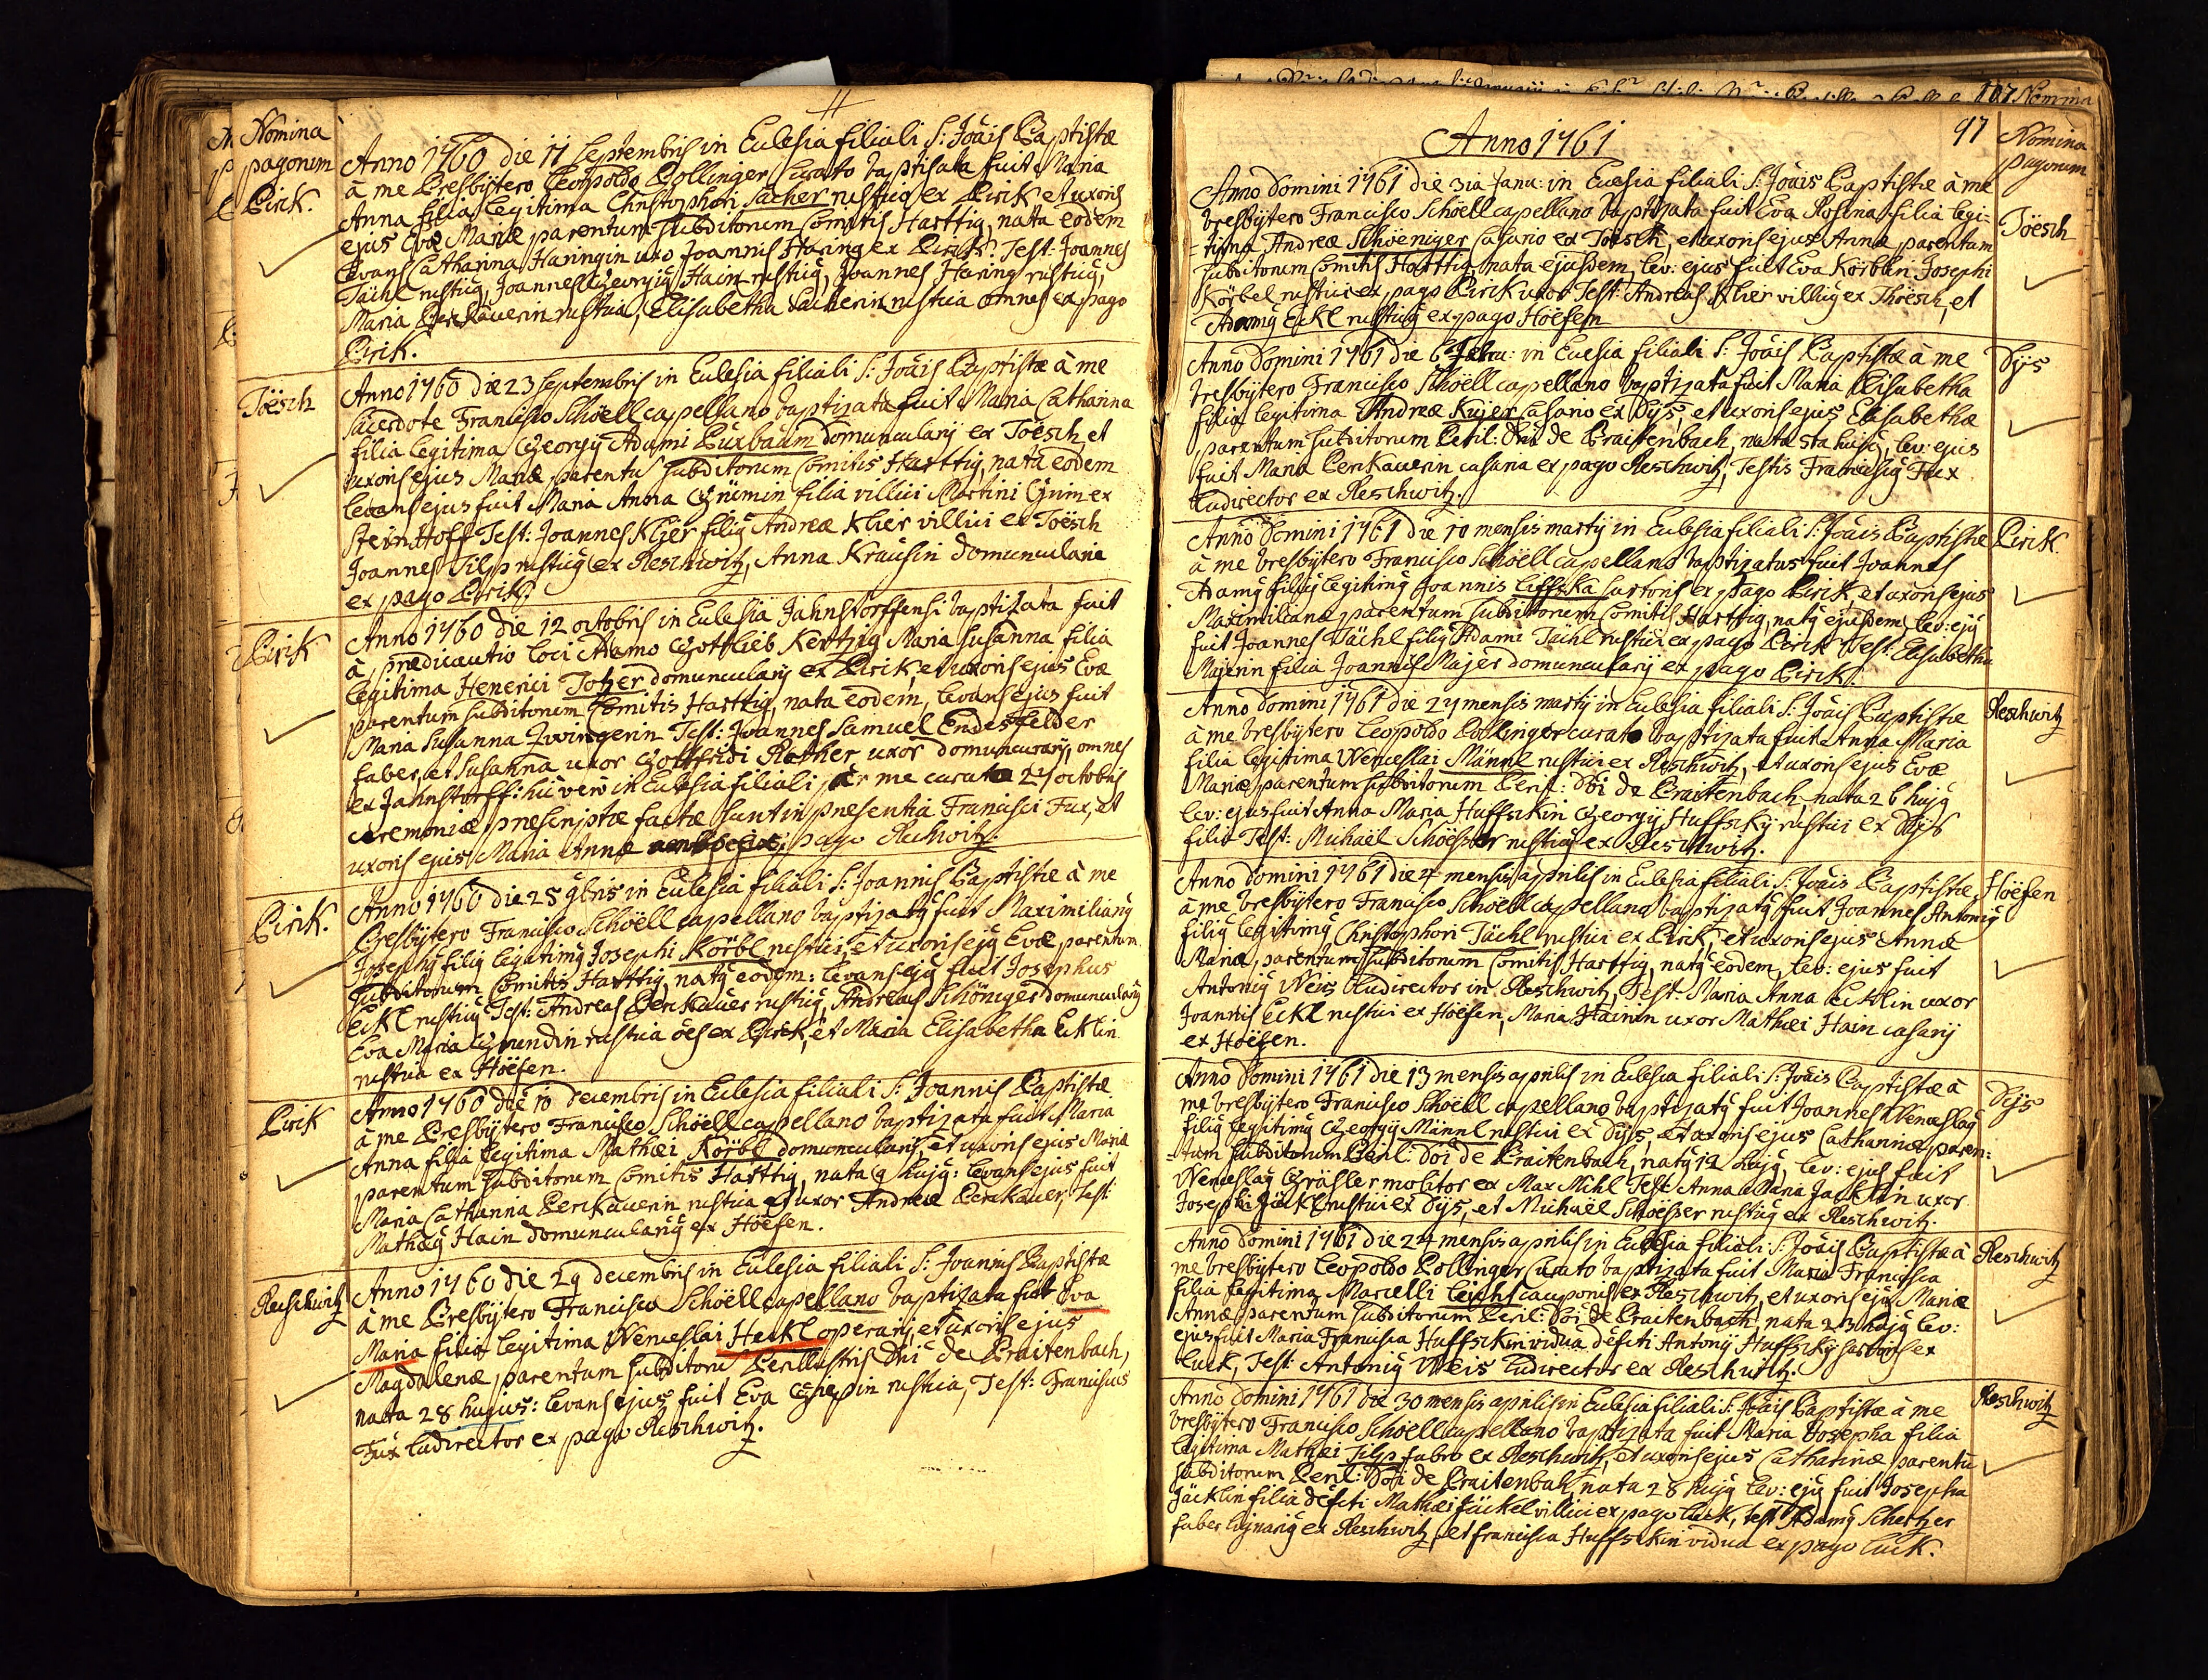 Nomina
pagorum
Pirik.
Anno 1760 die 11 Septembris in Eclesia filiali S: Joais Baptistæ
à me Presbÿtero Leopoldo Pollinger Curato baptisata fuit Maria
Anna filia legitima Christophori Sacher rustici ex Pirik, et uxoris
ejus Evæ Mariæ parentum subditorum Comitis Harttig, nata eodem
Levans Catharina Haringin uxor Joannis Haring ex Pirik. Test: Joannes
Tächl rusticus, Joannes Georgius Hain rusticus, Joannes Haring rusticus,
Maria Perkauerin rustica, Elisabetha Sacherin rustica omnes ex pago
Pirik.
Töesch
Anno 1760 die 23 Septembris in Eclesia filiali S: Joais Baptistæ à me
Sacerdote Francisco Schöell capellano baptizata fuit Maria Catharina
filia legitima Georgÿ Adami Puxbaum domuncularÿ ex Töesch et
uxoris ejus Mariæ, parentu subditorum Comitis Harttig, nata eodem
levans ejus fuit Maria Anna Grümin filia villici Martini Grim ex
SteinHoff Test: Joannes Klier filius Andreæ Klier villici ex Töesch
Joannes Filp rusticus ex Reschwitz, Anna Krausin domuncularia
ex pago Pirik.
Pirik
Anno 1760 die 12 octobris in Eclesia Jahnstorffensi baptizata fuit
à prædicantio loci Adamo Gottlieb Kertzig Maria Susanna filia
legitima Henerici Totzer domuncularÿ ex Pirik, et uxoris ejus Evæ
parentum subditorum Comitis Harttig, nata eodem, levans ejus fuit
Maria Susanna Zwingerin Test: Joannes Samuel Endesfelder
faber, et Susanna uxor Gottfridi Rother uxor domuncularÿ, omnes
ex Jahnstorff: hic verò in Eclesia filiali per me curato 24 octobris
ceremoniæ præscriptæ factæ sunt in præsentia Francisci Fux, et
uxoris ejus Maria Annæ pago Reschwitz.
Pirik.
Anno 1760 die 25 9bris in Eclesia filiali S: Joannis Baptistæ à me
Presbÿtero Francisco Schöell capellano baptizatus fuit Maximilianus
Josephus filius legitimus Josephi Körbl rustici, et uxoris ejus Evæ, parentum
subditorum Comitis Harttig, natus eodem: levans ejus fuit Josephus
Eckl rusticus Test: Andreas Perkauer rusticus, Andreas Schöniger domuncularÿ
Eva Maria Grundin rustica oes ex Pirik, et Maria Elisabetha Ecklin
rustica ex Höefen.
Pirik
Anno 1760 die 10 decembris in Eclesia filiali S: Joannis Baptistæ
à me Presbÿtero Francisco Schöell capellano baptizata fuit Maria
Anna filia legitima Mathæi Körbl domuncularÿ, et uxoris ejus Mariæ
parentum subditorum Comitis Harttig, nata 9 hujus: levans ejus fuit
Maria Catharina Perkauerin rustica uxor Andreæ Perkauer, Test:
Mathæus Hain domuncularius ex Höefen.
Reschwitz
Anno 1760 die 29 decembris in Eclesia filiali S: Joannis Baptistæ
à me Presbÿtero Francisco Schöell capellano baptizata fuit Eva
Maria filia legitima Wenceslai Heckl operarÿ et uxoris ejus
Magdalenæ, parentum subditoru Perillustris Dni de Praitenbach,
nata 28 hujus: levans ejus fuit Eva rustica, Test: Franciscus
Fux Ludirector ex pago Reschwitz.
107 Nomina
Anno 1761
97
Nomina
pagorum
Töesch
Anno Domini 1761 die 3ia Janu: in Eclesia filiali S: Joais Baptistæ à me
Presbÿtero Francisco Schöell capellano baptizata fuit Eva Rosina filia legi=
=tima Andreæ Schöeniger Casario ex Töesch, et uxoris ejus Annæ parentum
subditorum Comitis Harttig, nata ejusdem, lev: ejus fuit Eva Körblin Josephi
Körbel rustici ex pago Pirik uxor Test: Andreas Klier villicus ex Thöesch, et
Adamus Eckl rusticus ex pago Höefen
Dÿs
Anno Domini 1761 die 6 Febru: in Eclesia filiali S: Joais Baptistæ à me
Presbÿtero Francisco Schöell capellano baptizata fuit Maria Elisabetha
filia legitima Andreæ Kujer Casario ex Dÿs, et uxoris ejus Elisabethæ
parentum subditorum Peril: Dni de Praittenbach, nata 5ta hujus, lev: ejus
fuit Maria Perkauerin casaria ex pago Reschwitz, Testis Franciscus Fux
Ludirector ex Reschwitz.
Pirik.
Anno Domini 1761 die 10 mensis martÿ in Eclesia filiali S: Joais Baptistæ
à me Presbÿtero Francisco Schöell capellano baptizatus fuit Joannes
Adamus filius legitimus Joannis Liffska sartoris ex pago Pirik, et uxoris ejus
Maximiliana, parentum subditorum Comitis Harttig, natus ejusdem, lev: ejus
fuit Joannes Tächl filius Adami Tächl rustici ex pago Pirik Test: Elisabetha
Majerin filia Joannis Majer domuncularÿ ex pago Pirik.
Reschwitz
Anno Domini 1761 die 27 mensis martÿ in Eclesia filiali S: Joais Baptistæ
à me Presbÿtero Leopoldo Pollinger curato baptizata fuit Anna Maria
filia legitima Wenceslai Männl rustici ex Reschwitz, et uxoris ejus Evæ
Mariæ, parentum subditorum Peril: Doi de Praitenbach, nata 26 hujus
lev: ejus fuit Anna Maria Huffskin Georgÿ Huffskÿ rustici ex Dÿs
filia Test: Michaël Schöesser rusticus ex Reschwitz.
Höefen
Anno Domini 1761 die 4 mensis aprilis in Eclesia filiali S: Joais Baptistæ,
à me Presbÿtero Francisco Schöell capellano baptizatus fuit Joannes Antonius
filius legitimus Christophori Tächl rustici ex Pirik, et uxoris ejus Annæ
Mariæ, parentum subditorum Comitis Harttig, natus eodem, lev: ejus fuit
Antonius Weis Ludirector in Reschwitz, Test: Maria Anna Ecklin uxor
Joannis Eckl rustici ex Höefen, Maria Hainin uxor Mathæi Hain casarÿ
ex Höefen.
Dÿs
Anno Domini 1761 die 13 mensis aprilis in Eclesia filiali S: Joais Baptistæ à
me Presbÿtero Francisco Schöell capellano baptizatus fuit Joannes Wenceslaus
filius legitimus Georgÿ Männl rustici ex Dÿs, et uxoris ejus Catharinæ paren=
=tum subditorum Peril: Doi de Praitenbach, natus 12 hujus, lev: ejus fuit
Wenceslaus Grässler molitor ex Max Mihl Test: Anna Maria Jacklin uxor
Josephi Jäkl rustici ex Dÿs, et Michaël Schöesser rusticus ex Reschwitz.
Reschwitz
Anno Domini 1761 die 24 mensis aprilis in Eclesia filiali S: Joais Baptistæ à
me Presbÿtero Leopoldo Pollinger Curato baptizata fuit Maria Francisca
filia legitima Marcelli Leichs cauponis ex Reschwitz, et uxoris ejus Mariæ
Annæ parentum subditorum Peril: Doi de Praitenbach, nata 23 hujus lev:
ejus fuit Maria Francisca Huffskin vidua defcti Antonÿ Huffskÿ sartoris ex
Luck, Test: Antonius Weis Ludirector ex Reschwitz.
Reschwitz
Anno Domini 1761 die 30 mensis aprilis in Eclesia filiali S: Joais Baptistæ à me
Presbÿtero Francisco Schöell capellano baptizata fuit Maria Josepha filia
legitima Mathæi Filp fabro ex Reschwitz, et uxoris ejus Catharinæ parentu
subditorum Peril: Doi de Praitenbah, nata 28 hujus lev: ejus fuit Josepha
Jäcklin filia defcti Mathæi Jäckel villici ex pago Luck, test Adamus Schertzer
faber lignarius ex Reschwitz, et Francisca Huffskin vidua ex pago Luck.